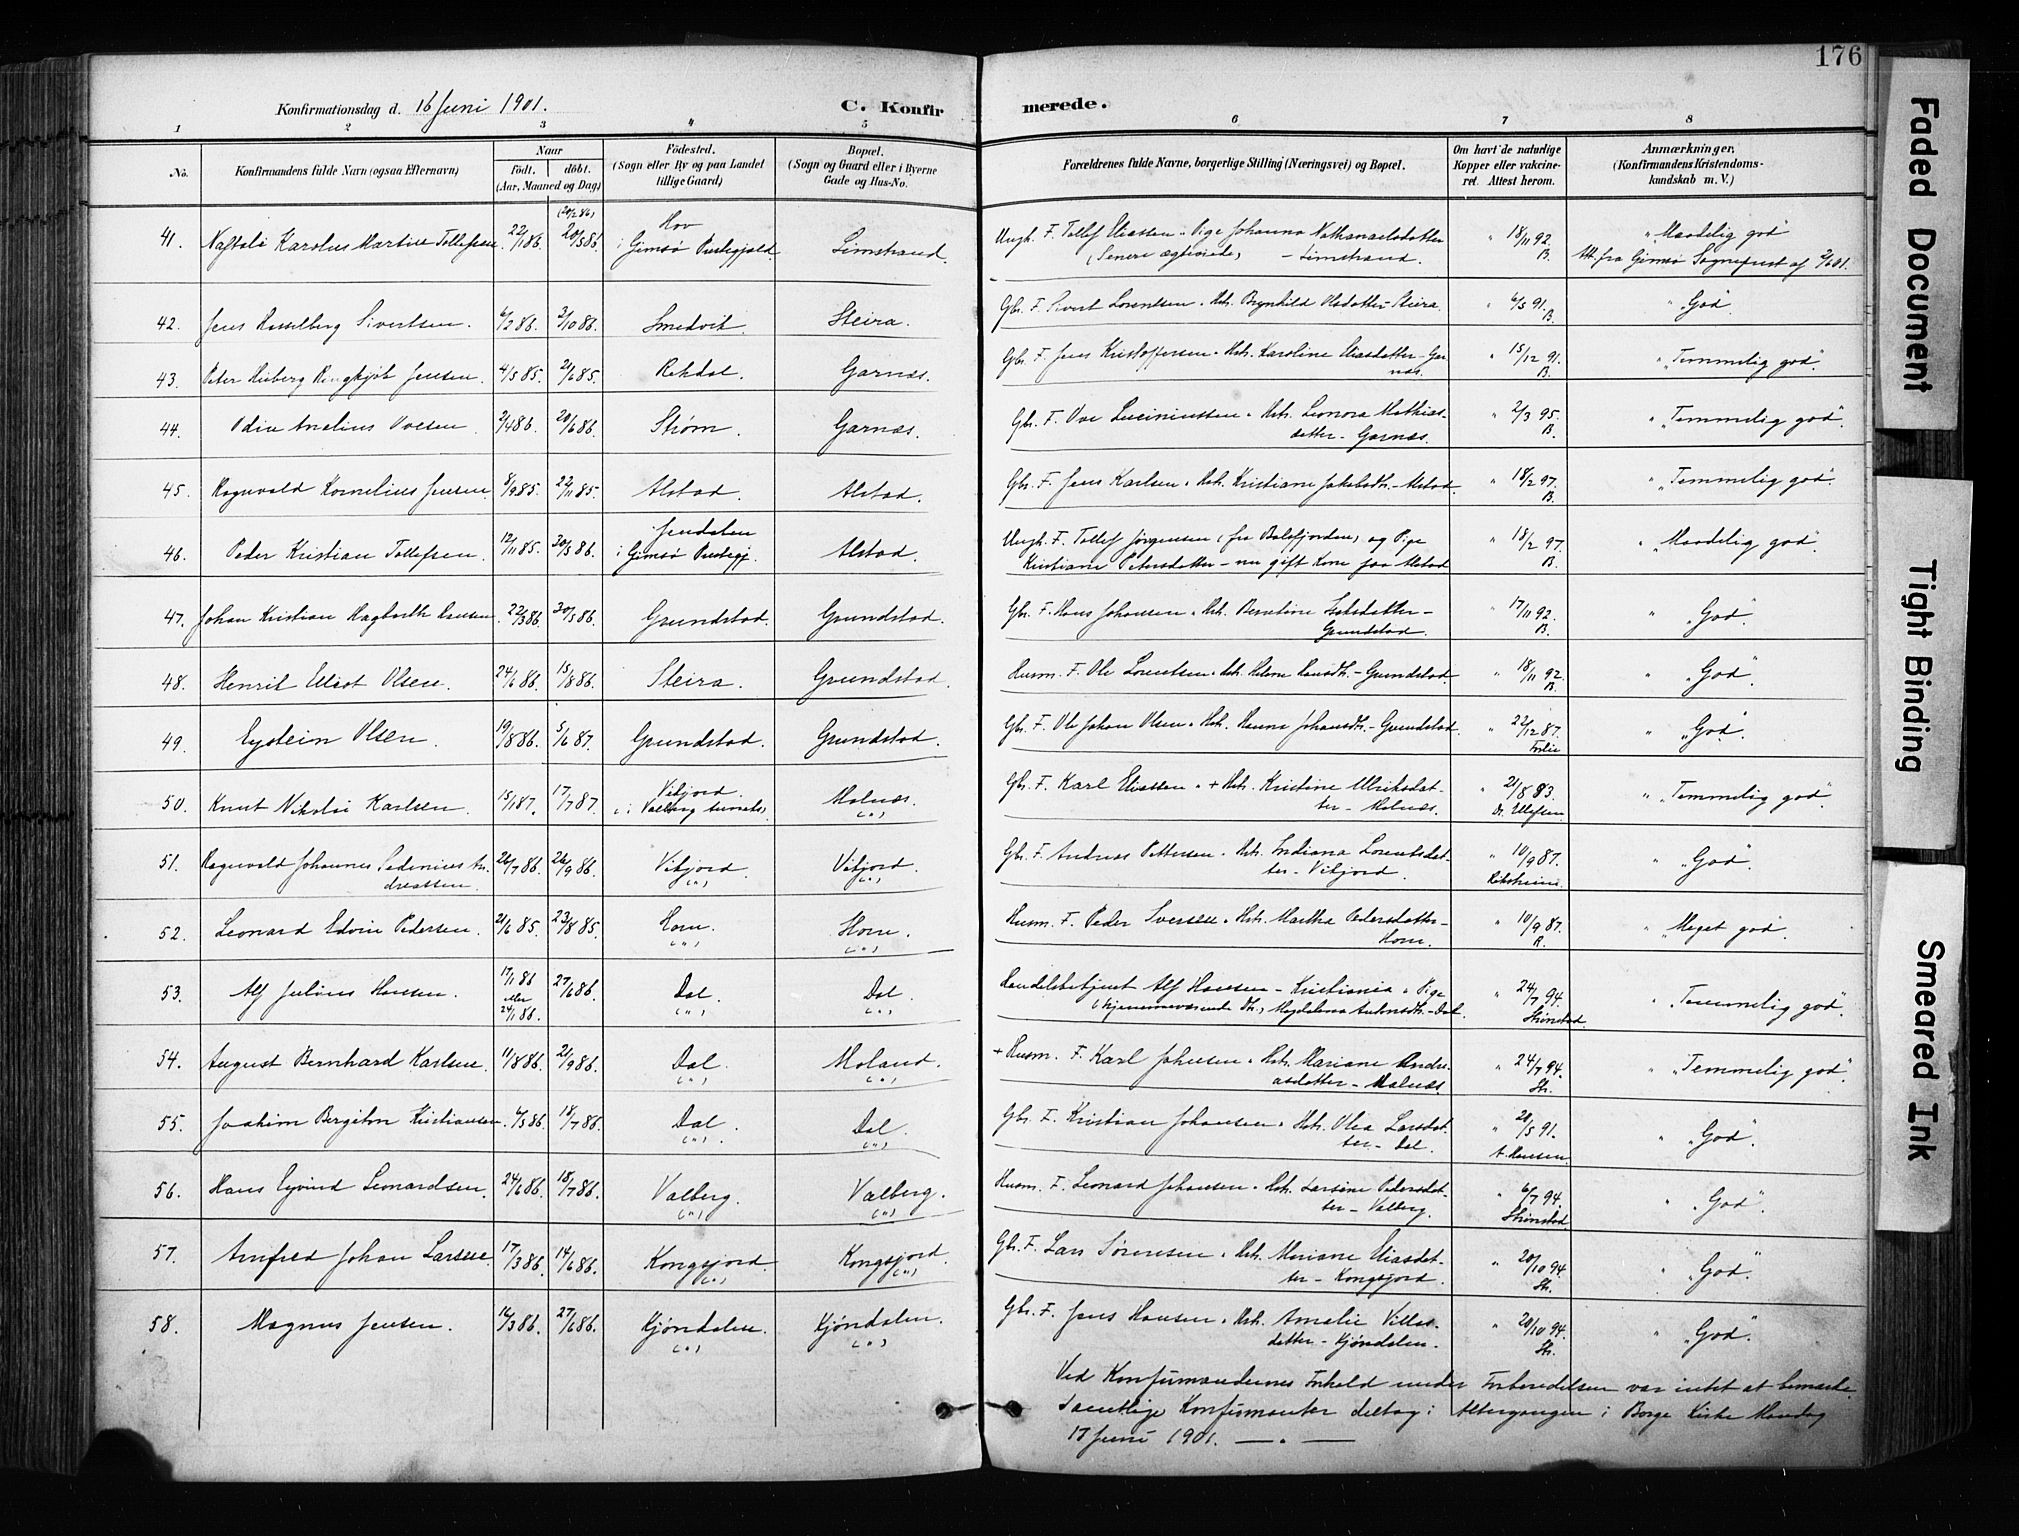 176
Konfirmationsdag d. 16 Juni 1901.
C. Konfirmerede.
1 2 3 4 5 6 7 8
No.
Konfirmandens fulde Navn (ogsaa Efternavn)
Naar
Födt. döbt.
(Aar, Maaned og Dag)
Födested.
(Sogn eller By og paa Landet
tillige Gaard)
Bopæl.
(Sogn og Gaard eller i Byerne
Gade og Hus-No.
Forældrenes fulde Navne, borgerlige Stilling (Næringsvei) og Bopæl.
Om havt de naturlige
Kopper eller vakcine-
ret. Attest herom.
Anmærkninger,
(Konfirmandens Kristendoms-
kundskab m. V.)
41. Naftali Karolus Martin Tollefsen 22/1 86. (20/2 86) 20/5 86. Hov i Gimsø Præstegjæld Limstrand. Ungk. F. Tollef Eliassen Pige Johanna Nathanaelsdatter " 18/11 92. B. " "Maadelig god"
(Senere ægteviede) - Limstrand. Att. fra Gimsø Sognepræst af
42. Jens Hesselberg Sivertsen. 3/10 86. Smedvik. Steira. Gbr. F. Sivert Lorentsen Hst. Brynhild Olsdatter Steira " 6/5 91. B. " "God"
43. Peter Jensen. 4/5 85. 21/6 85. Rekdal. Garnæs. Gbr. F. Jens Kristoffersen Hst. Karoline Eliasdatter - Gar
næs. " 15/12 91. B. " "Temmelig god".
44. Odin Anelius Ovesen. 2/4 86. 20/6 86. Strøm. Garnæs. Gbr. F. Ove Hst. Leonora Mathias-
datter - Garnæs. " 2/3 95. B. " "Temmelig god".
45. Ragnvald Kornelius Jensen 8/9 85. 22/11 85. Alstad. Alstad. Gbr. F. Jens Karlsen Hst. Kristiane Jakobsdtr. - Alstad. " 18/2 97. B. " "Temmelig god".
46. Peder Kristian Tollefsen. 12/11 85. 30/5 86. i Gimsø Præstegj. Alstad. Ungk. F. Tollef Jørgensen (fra Balsfjorden) og Pige
Kristiane Petersdatter - nu gift Kone paa Alstad " 18/2 97. B. " "Maadelig god".
47. Johan Kristian Hagbarth Hansen 22/3 86. 30/5 86. Grundstad. Grundstad. Gbr. F. Hans Johansen Hst. Berntine Isaksdatter -
Grundstad. " 17/11 92. B. " "God".
48. Henrik Elliot Olsen. 24/6 86. 15/8 86. Steira. Grundstad. Husm. F. Ole Lorentsen Hst. Helene Hansdtr. - Grundstad. " 18/11 92. B. " "God".
49. Eystein Olsen. 19/8 86. 5/6 87. Grundstad. Grundstad. Gbr. F. Ole Johan Olsen Hst. Hanna Johansdtr. - Grundstad. " 22/12 87. " "God".
50. Knut Nikolai Karlsen. 15/1 87. 17/7 87. Vikjord. (i Valberg Annex) Molnæs. (") Gbr. F. Karl Eliassen + Hst. Kristine Ulriksdat-
ter - Molnæs. " 21/8 83. Dr. Ellefsen " "Temmelig god".
51. Ragnvald Johannes Pedenius An-
dreassen. 26/7 86. 26/9 86. Vikjord (") Vikjord. (") Gbr. F. Andreas Pettersen Hst. Indiana Lorentsdat-
ter - Vikjord. " 10/9 87. " "God".
52. Leonard Edvin Pedersen. 21/6 85. 23/8 85. Horn. (") Horn. (") Husm. F. Peder Iversen Hst. Martha Pedersdatter -
Horn. " 10/9 87. R. " "Meget god".
53. Alf Julius Hansen. 17/1 86 eller 24/1 86. 27/6 86. Dal. (") Dal. (") Handelsbetjent Alf Hansen - Kristiania Pige
(hjemmeværende Dtr.) Magdalena Antonsdtr. - Dal. " 24/7 94. Skönstad " "Temmelig god".
54. August Bernhard Karlsen. 11/8 86. 21/9 86. Dal. (") Moland. (") + Husm. F. Karl Johnsen Hst. Mariane Andre-
asdatter - Molnæs. " 24/7 94. Sk. " "Temmelig god".
55. Joakim Bergiton Kristiansen. 4/5 86. 18/7 86. Dal. (") Dal. (") Gbr. F. Kristian Johansen Hst. Olea Larsdat-
ter - Dal. " 20/5 91. A. Hansen. " "God".
56. Hans Eyvind Leonardsen. 24/6 86. 18/7 86. Valberg. (") Valberg. (") Husm. F. Leonard Johansen Hst. Larsine Pedersdat-
ter - Valberg. " 6/7 94. Skönstad. " "God".
57. Arnfred Johan Larsen 17/3 86. 14/6 86. Kongsjord. (") Kongsjord. (") Gbr. F. Lars Sørensen Hst. Mariane Eliasdat-
ter - Kongsjord. " 20/10 94. Sk. " "God".
58. Magnus Jensen. 16/3 86. 27/6 86. Kjøndalen. (") Kjøndalen. (") Gbr. F. Jens Hansen Hst. Amalie Villas-
datter - Kjøndalen. " 20/10 94. Sk. " "God".
Ved Konfirmandernes Forhold under Forberedelsen var intet at bemærke.
Samtlige Konfirmanter deltog i Altergangen i Borge Kirke Mandag
17 Juni 1901.
Faded Document
Tight Binding
Smeared Ink